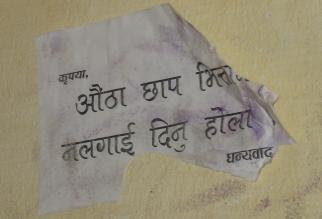 कृपया,
औंठा छाप भित्ता..
नलगाई दिनु होला
धन्यवाद